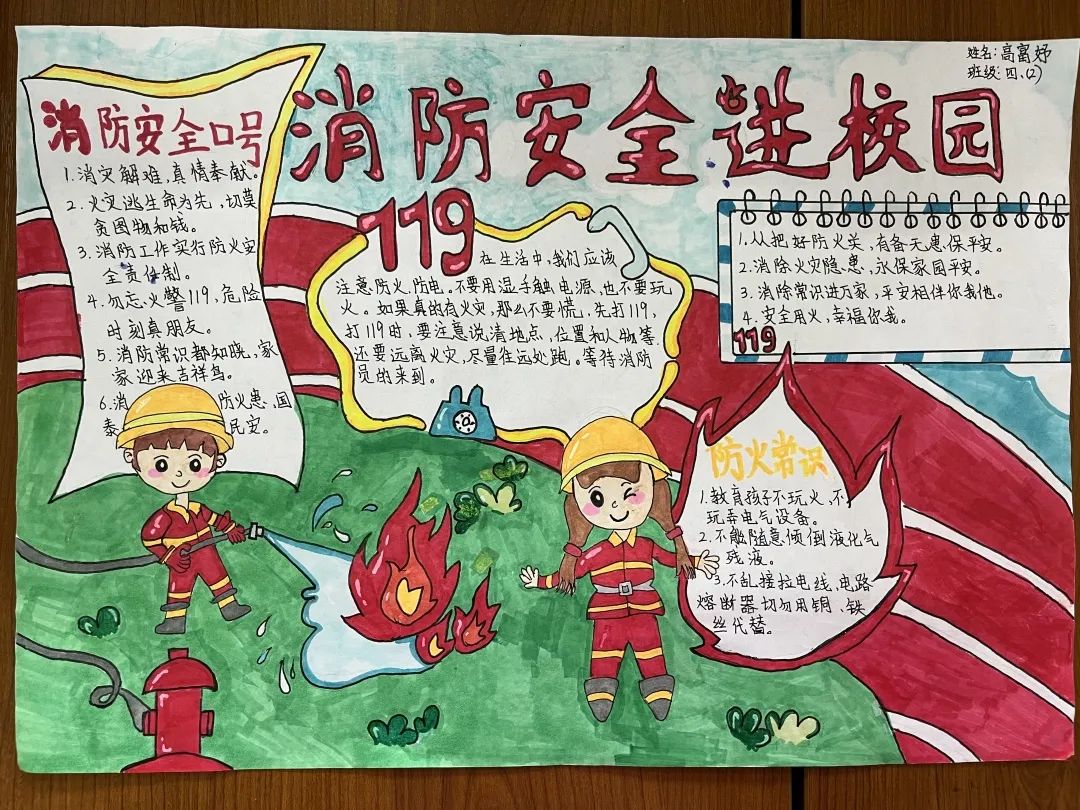 姓名:高富妤
班级:四、(2)
消防安全进校园
消防安全口号
1.消灾解难,真情奉献。
2.火灾逃生命为先,切莫
贪图物和钱。
3.消防工作实行防火安
全责任制。
4.勿忘火警119,危险
时刻真朋友。
5.消防常识都知晓,家
家迎来吉祥鸟。
6.消 防火患,国
泰 民安。
119
在生活中,我们应该
注意防火、防电。不要用湿手触电源,也不要玩
火。如果真的有火灾,那么不要慌。先打119,
打119时,要注意说清地点,位置和人物等,
还要远离火灾,尽量往远处跑。等待消防
员的来到。
1.从把好防火关,有备无患保平安。
2.消除火灾隐患,永保家园平安。
3.消除常识进万家,平安相伴你我他。
4.安全用火,幸福你我。
119
防火常识
1.教育孩子不玩火,不
玩弄电气设备。
2.不能随意倾倒液化气
残液。
3.不乱接拉电线,电路
熔断器切勿用铜、铁
丝代替。